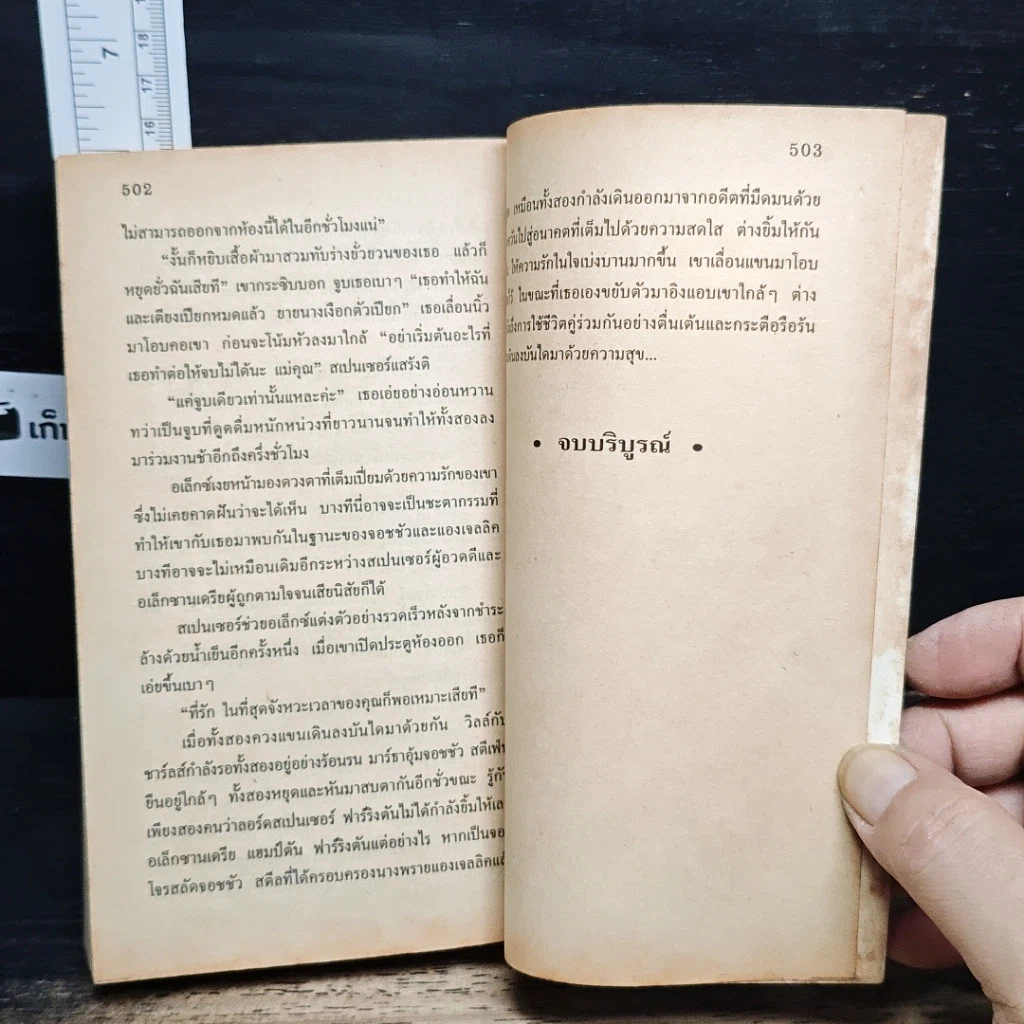 7
18
17
16
เก็
502
ไม่สามารถออกจากห้องนี้ได้ในอีกชั่วโมงแน่”
“งั้นก็หยิบเสื้อผ้ามาสวมทับร่างยั่วยวนของเธอ แล้วก็
หยุดยั่วฉันเสียที” เขากระซิบบอก จูบเธอเบาๆ “เธอทำให้ฉัน
และเตียงเปียกหมดแล้ว ยายนางเงือกตัวเปียก” เธอเลื่อนนิ้ว
มาโอบคอเขา ก่อนจะโน้มหัวลงมาใกล้ “อย่าเริ่มต้นอะไรที่
เธอทำต่อให้จบไม่ได้นะ แม่คุณ” สเปนเซอร์แสร้งติ
“แค่จูบเดียวเท่านั้นแหละค่ะ” เธอเอ่ยอย่างอ่อนหวาน
ทว่าเป็นจูบที่ดูดดื่มหนักหน่วงที่ยาวนานจนทำให้ทั้งสองลง
มาร่วมงานช้าอีกถึงครึ่งชั่วโมง
อเล็กซ์เงยหน้ามองดวงตาที่เต็มเปี่ยมด้วยความรักของเขา
ซึ่งไม่เคยคาดฝันว่าจะได้เห็น บางทีนี่อาจจะเป็นชะตากรรมที่
ทำให้เขากับเธอมาพบกันในฐานะของจอชชัวและแองเจลลิค
บางทีอาจจะไม่เหมือนเดิมอีกระหว่างสเปนเซอร์ผู้อวดดีและ
อเล็กซานเดรียผู้ถูกตามใจจนเสียนิสัยก็ได้
สเปนเซอร์ช่วยอเล็กซ์แต่งตัวอย่างรวดเร็วหลังจากชำระ
ล้างด้วยน้ำเย็นอีกครั้งหนึ่ง เมื่อเขาเปิดประตูห้องออก เธอก็
เอ่ยขึ้นเบาๆ
“ที่รัก ในที่สุดจังหวะเวลาของคุณก็พอเหมาะเสียที”
เมื่อทั้งสองควงแขนเดินลงบันไดมาด้วยกัน วิลล์กับ
ชาร์ลส์กำลังรอทั้งสองอยู่อย่างร้อนรน มาร์ธาอุ้มจอชชัว สตีเฟ่น
ยืนอยู่ใกล้ๆ ทั้งสองหยุดและหันมาสบตากันอีกชั่วขณะ รู้กัน
เพียงสองคนว่าลอร์ดสเปนเซอร์ ฟาร์ริงตันไม่ได้กำลังยิ้มให้เล
อเล็กซานเดรีย แฮมป์ตัน ฟาร์ริงตันแต่อย่างไร หากเป็นจอ
โจรสลัดจอชชัว สตีลที่ได้ครอบครองนางพรายแองเจลลิคแล้
503
เหมือนทั้งสองกำลังเดินออกมาจากอดีตที่มืดมนด้วย
วันไปสู่อนาคตที่เต็มไปด้วยความสดใส ต่างยิ้มให้กัน
ให้ความรักในใจเบ่งบานมากขึ้น เขาเลื่อนแขนมาโอบ
ไว้ ในขณะที่เธอเองขยับตัวมาอิงแอบเขาใกล้ๆ ต่าง
ถึงการใช้ชีวิตคู่ร่วมกันอย่างตื่นเต้นและกระตือรือร้น
ดินลงบันไดมาด้วยความสุข...
• จบบริบูรณ์ •